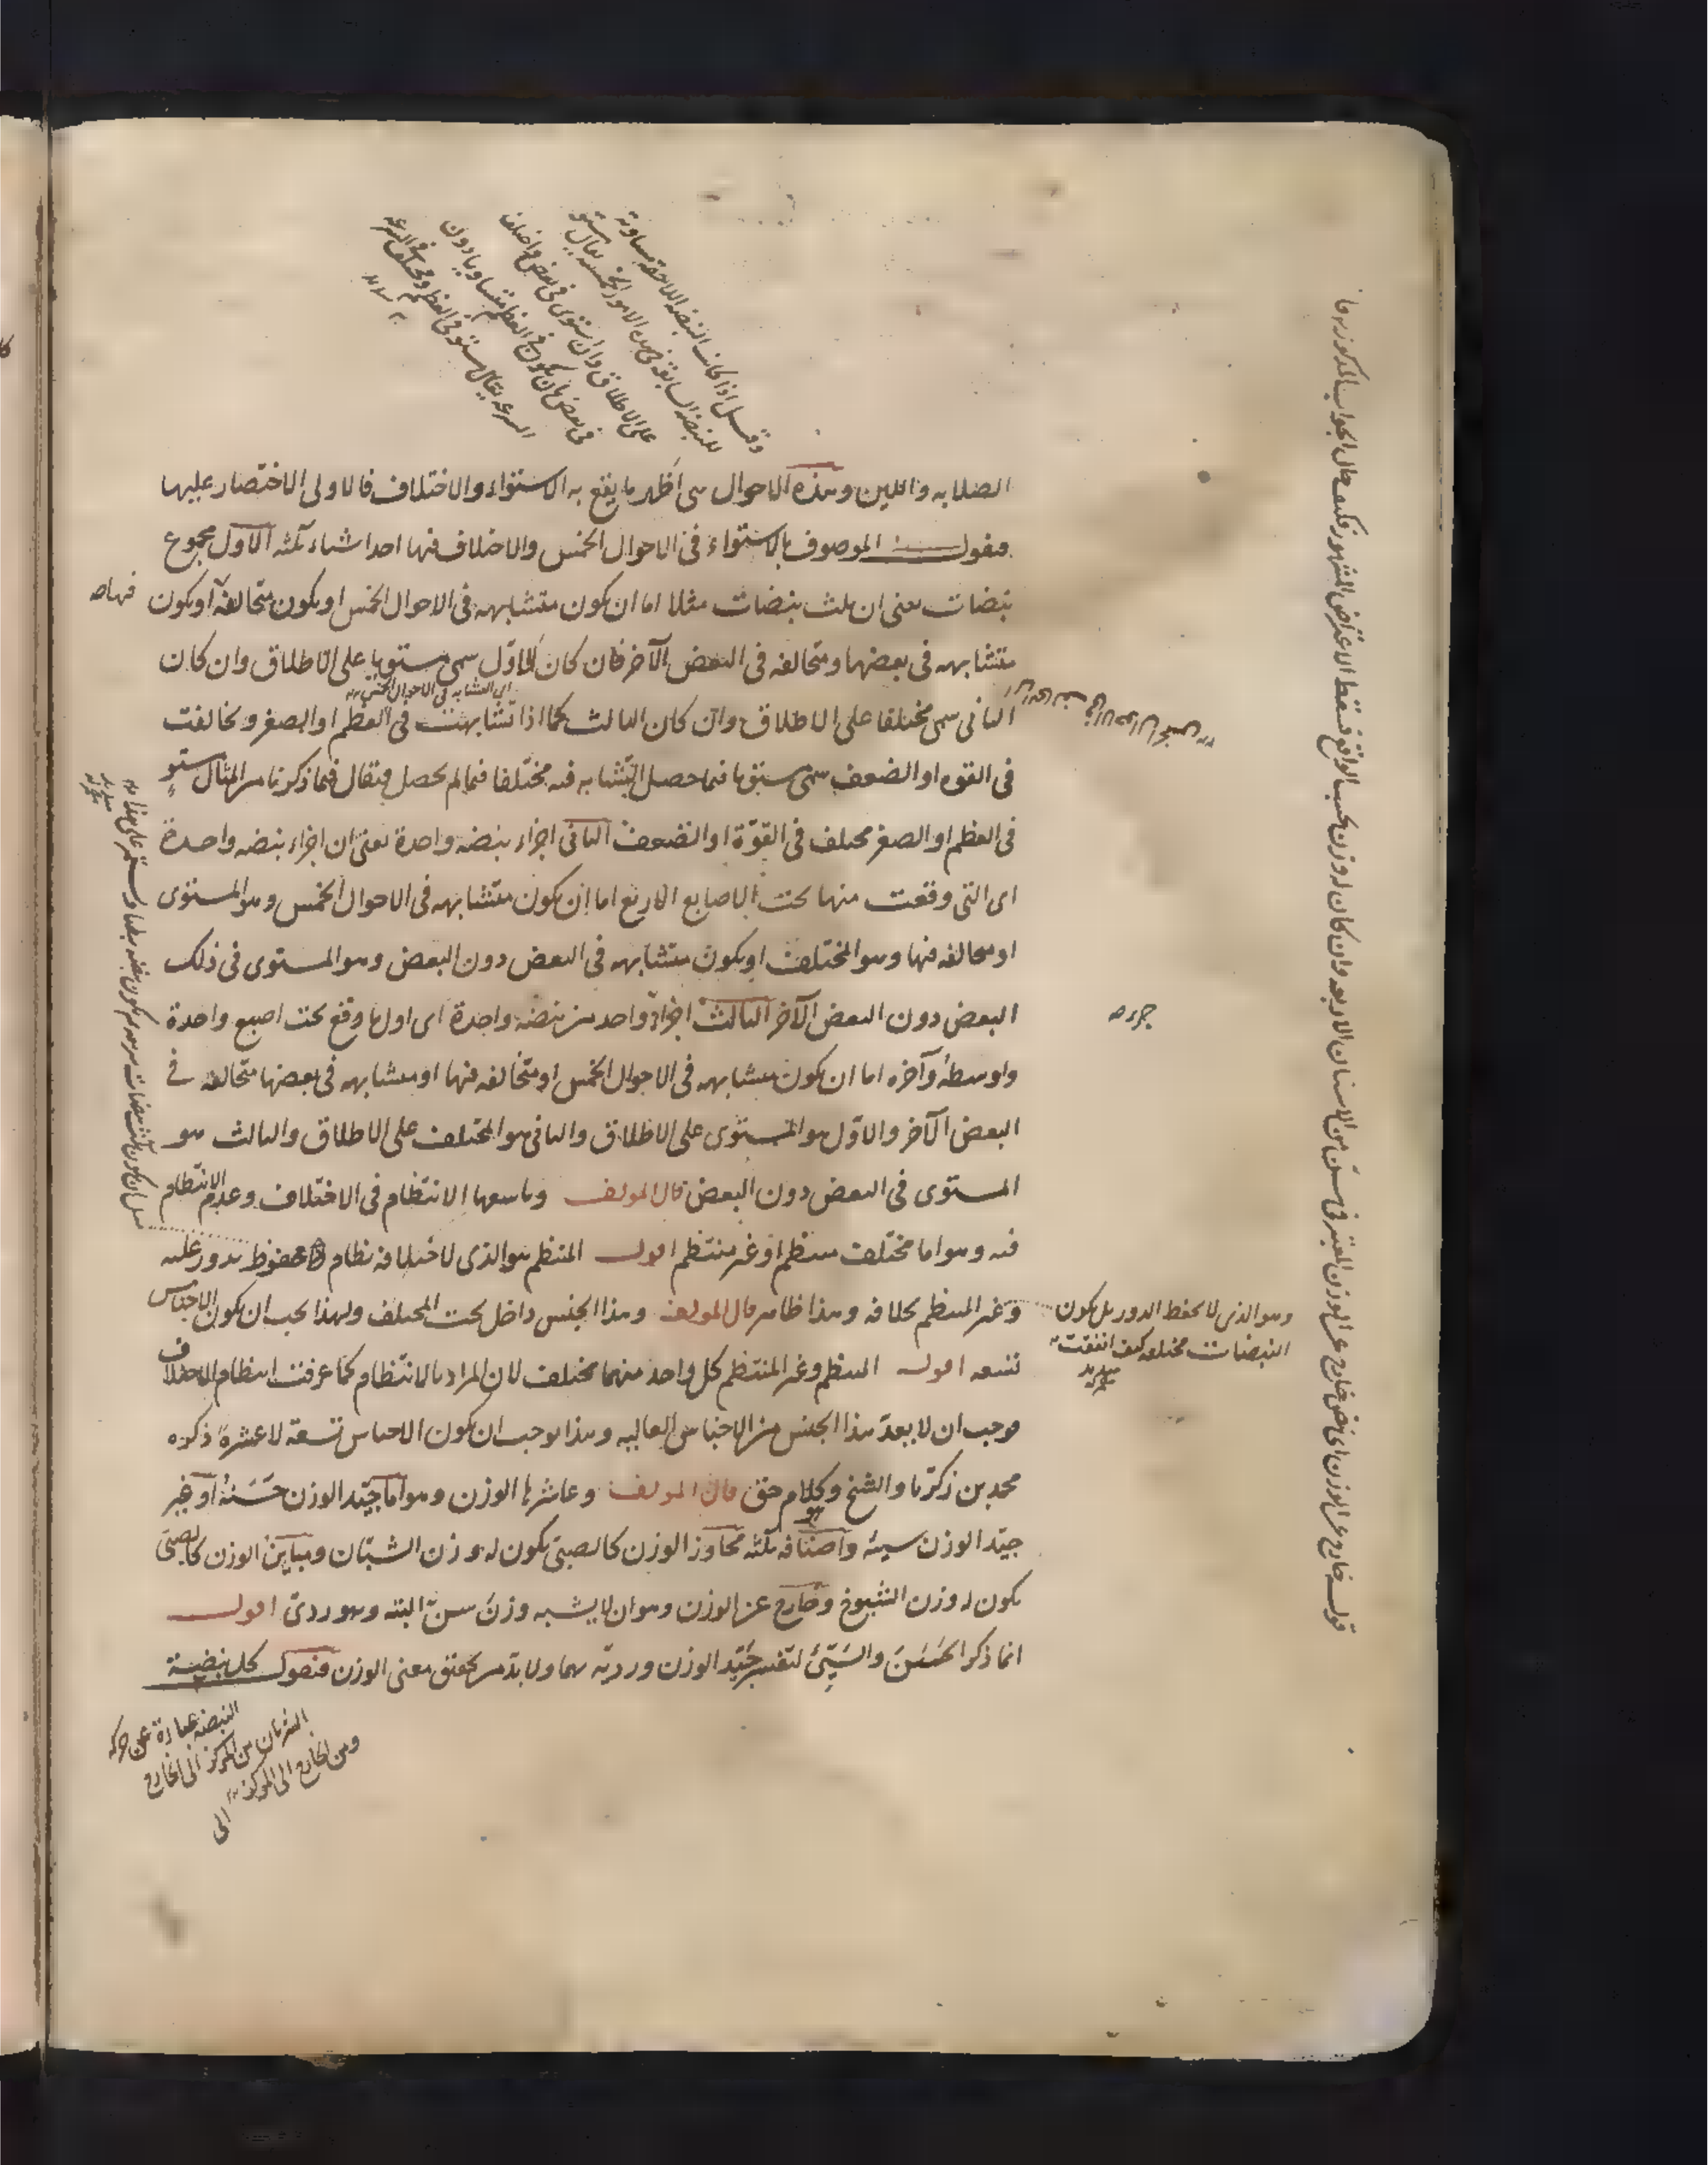 وقيل اذا كانت النبضة اللاحقة مساوية
للنبضة السابقة في هذه الامور الخمسة يقال مستو
على الاطلاق وان استوى في بعض واختلف
في بعض بان يكون في العظم متساويا دون
السرعة يقال مستو في العظم ومختلف في السرعة
الصلابه واللين وهذه الاحوال هى اظهر ما يقع به الاستواء والاختلاف فالاولى الاختصار عليها
فنقول الموصوف بالاستواء فى الاحوال الخمس والاختلاف فيها احد اشياء ثلثه الاول مجموع
نبضات يعنى ان ثلث نبضات مثلا اما ان يكون متشابهه فى الاحوال الخمس او يكون متخالفة او يكون
فيها صه
متشابهه فى بعضها ومتخالفه فى البعض الآخر فان كان الاوّل سمى مستويا على الاطلاق وان كان
اى التشابه فى الاحوال الخمس
الثانى سمى مختلفا على الاطلاق وان كان الثالث كما اذا تشابهت فى العظم او الصغر وتخالفت
فى القوه او الضعف سمى مستويا فيما حصل التشابه فيه مختلفا فيما لم يحصل فيقال فيما ذكرنا من المثال مستو
فى العظم او الصغر مختلف فى القوّة او الضعف الثانى اجزاء نبضه واحدة يعنى ان اجزاء نبضه واحدة
اى التى وقعت منها تحت الاصابع الاربع اما ان يكون متشابهه فى الاحوال الخمس وهو المستوى
او متخالفه فيها وهو المختلف او يكون متشابهه فى البعض دون البعض وهو المستوى فى ذلك
البعض دون البعض الآخر الثالث اجزاء واحد من نبضة واحدة اى اول ما وقع تحت اصبع واحدة
جزء صه
واوسطه وآخره اما ان يكون متشابهه فى الاحوال الخمس او متخالفه فيها او متشابهه فى بعضها متخالفه فى
البعض الآخر والاوّل هو المستوى على الاطلاق والثانى هو المختلف على الاطلاق والثالث هو
المستوى فى البعض دون البعض قال المولف وتاسعها الانتظام فى الاختلاف وعدم الانتظام
فيه وهو اما مختلف منتظم او غير منتظم اقول المنتظم هو الذى لاختلافه نظام محفوظ يدور عليه
وغير المنتظم بخلافه وهذا ظاهر قال المولف وهذا الجنس داخل تحت المختلف ولهذا يجب ان يكون الاجناس
وهو الذى لا يحفظ الدور بل يكون
النبضات مختلفه كيف اتفقت
تسعه اقول المنتظم وغير المنتظم كل واحد منهما مختلف لان المراد بالانتظام كما عرفت انتظام الاختلاف
فوجب ان لا يعدّ هذا الجنس من الاجناس العاليه وهذا يوجب ان يكون الاجناس تسعة لا عشرة ذكره
محمد بن زكريا والشيخ وكلام حق قال المولف وعاشرها الوزن وهو اما جيّد الوزن حَسَنهُ او غير
هو
جيّد الوزن سيئه واصنافه ثلثه مجاوز الوزن كالصبى يكون له وزن الشبّان ومباين الوزن كالصبى
يكون له وزن الشيوخ وخارج عن الوزن وهو ان لا يشبه وزن سنّ البته وهو ردى اقول
انما ذكر الحَسَنَ والسَيِّئَ لتفسير جَيّد الوزن ورديّه بهما ولا بدّ من تحقيق معنى الوزن فنقول كل نبضة
النبضة عبارة عن حركه
الشريان من المركز الى الخارج
ومن الخارج الى المركز